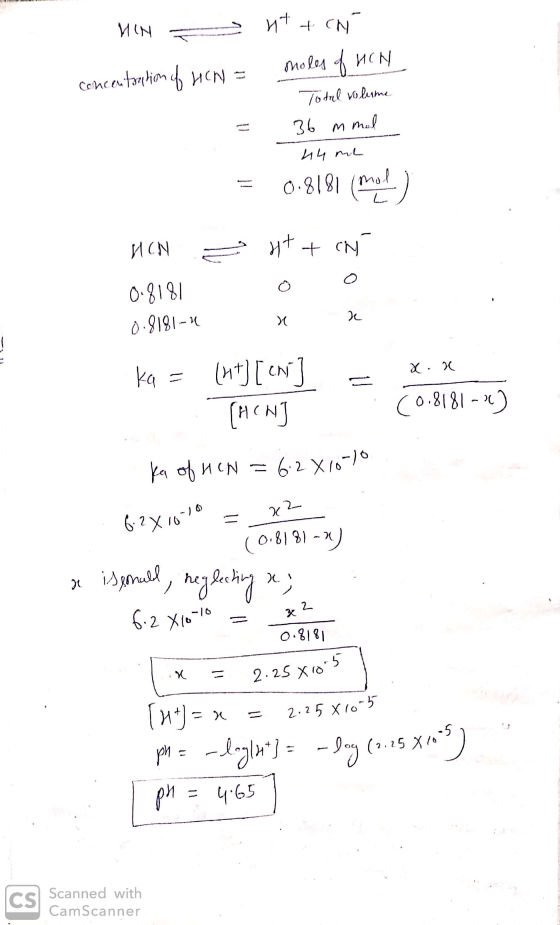 HCN ⇌ H⁺ + CN⁻
concentration of HCN = moles of HCN / Total volume
= 36 m mol / 44 mL
= 0.8181 (mol/L)
HCN ⇌ H⁺ + CN⁻
0.8181 0 0
0.8181-x x x
ka = [H⁺][CN⁻] / [HCN] = x.x / (0.8181-x)
ka of HCN = 6.2 X 10⁻¹⁰
6.2 X 10⁻¹⁰ = x² / (0.8181-x)
x is small, neglecting x;
6.2 X10⁻¹⁰ = x² / 0.8181
x = 2.25 X10⁻⁵
[H⁺] = x = 2.25 X10⁻⁵
pH = -log[H⁺] = -log (2.25 X10⁻⁵)
pH = 4.65
CS Scanned with
CamScanner